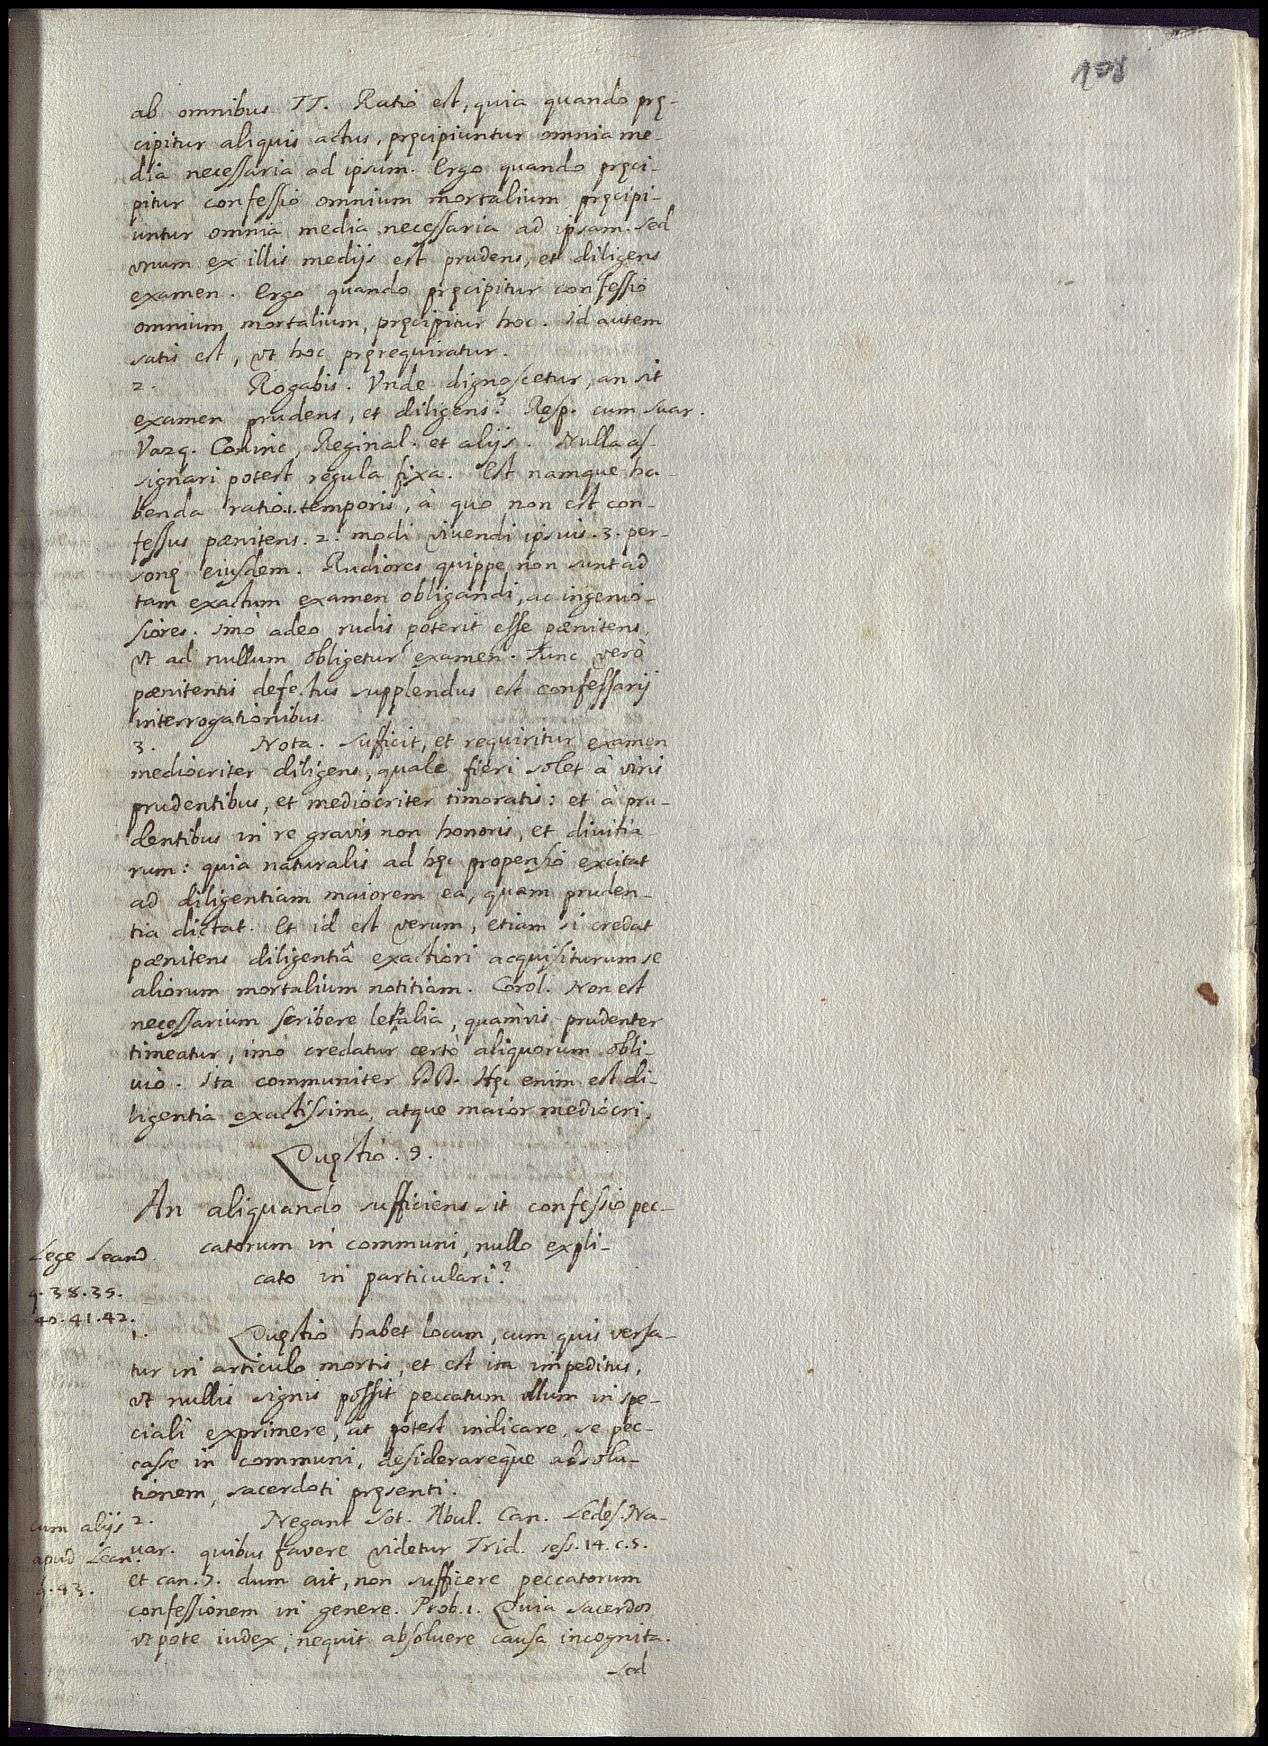 108
ab omnibus TT. Ratio est, quia quando prę-
cipitur aliquis actus, pręcipiuntur omnia me-
dia necessaria ad ipsum. Ergo quando pręci-
pitur confessio omnium mortalium pręcipi-
untur omnia media necessaria ad ipsam. Sed
vnum ex illis medijs est prudens, et diligens
examen. Ergo quando pręcipitur confessio
omnium mortalium, pręcipitur hoc. Id autem
satis est, vt hoc pręrequiratur.
2. Rogabis. Vnde dignoscetur, an sit
examen prudens, et diligens? Resp. cum Suar.
Vazq. Coninc, Reginal. et alijs. Nulla as-
signari potest regula fixa. Est namque ha-
benda ratio 1. temporis, à quo non est con-
fessus pænitens. 2. modi viuendi ipsius. 3. per-
sonę eiusdem. Rudiores quippe non sunt ad
tam exactum examen obligandi, ac ingenio-
siores. Imò adeo rudis poterit esse pænitens,
vt ad nullum obligetur examen. Tunc verò
pænitentis defectus supplendus est confessarij
interrogationibus.
3. Nota. Sufficit, et requiritur examen
mediocriter diligens, quale fieri solet à viris
prudentibus, et mediocriter timoratis: et à pru-
dentibus in re gravis non honoris, et divitia-
rum: quia naturalis ad hęc propensio excitat
ad diligentiam maiorem ea, quam pruden-
tia dictat. Et id est verum, etiam si credat
pænitens diligentiâ exactiori acquisiturum se
aliorum mortalium notitiam. Corol. Non est
necessarium scribere lethalia, quamvis prudenter
timeatur, imò credatur certò aliquorum obli-
uio. Ita communiter DD. Hęc enim est di-
ligentia exactissima, atque maior mediocri.
Quęstio. 9.
An aliquando sufficiens sit confessio pec-
catorum in communi, nullo expli-
cato in particulari?
Lege Leand.
q. 38. 39.
40. 41. 42.
1. Quęstio habet locum, cum quis versa-
tur in articulo mortis, et est ita impeditus,
vt nullis signis possit peccatum ullum in spe-
ciali exprimere, at potest indicare, se pec-
casse in communi, desiderareque absolu-
tionem, sacerdoti pręsenti.
cum alijs
apud Lean.
q. 43.
2. Negant Sot. Abul. Can. Ledes. Na-
uar. quibus favere videtur Trid. sess. 14. c. 5.
et can. 7. dum ait, non sufficere peccatorum
confessionem in genere. Prob. 1. Quia sacerdos
vt pote iudex, nequit absoluere causa incognita.
sed